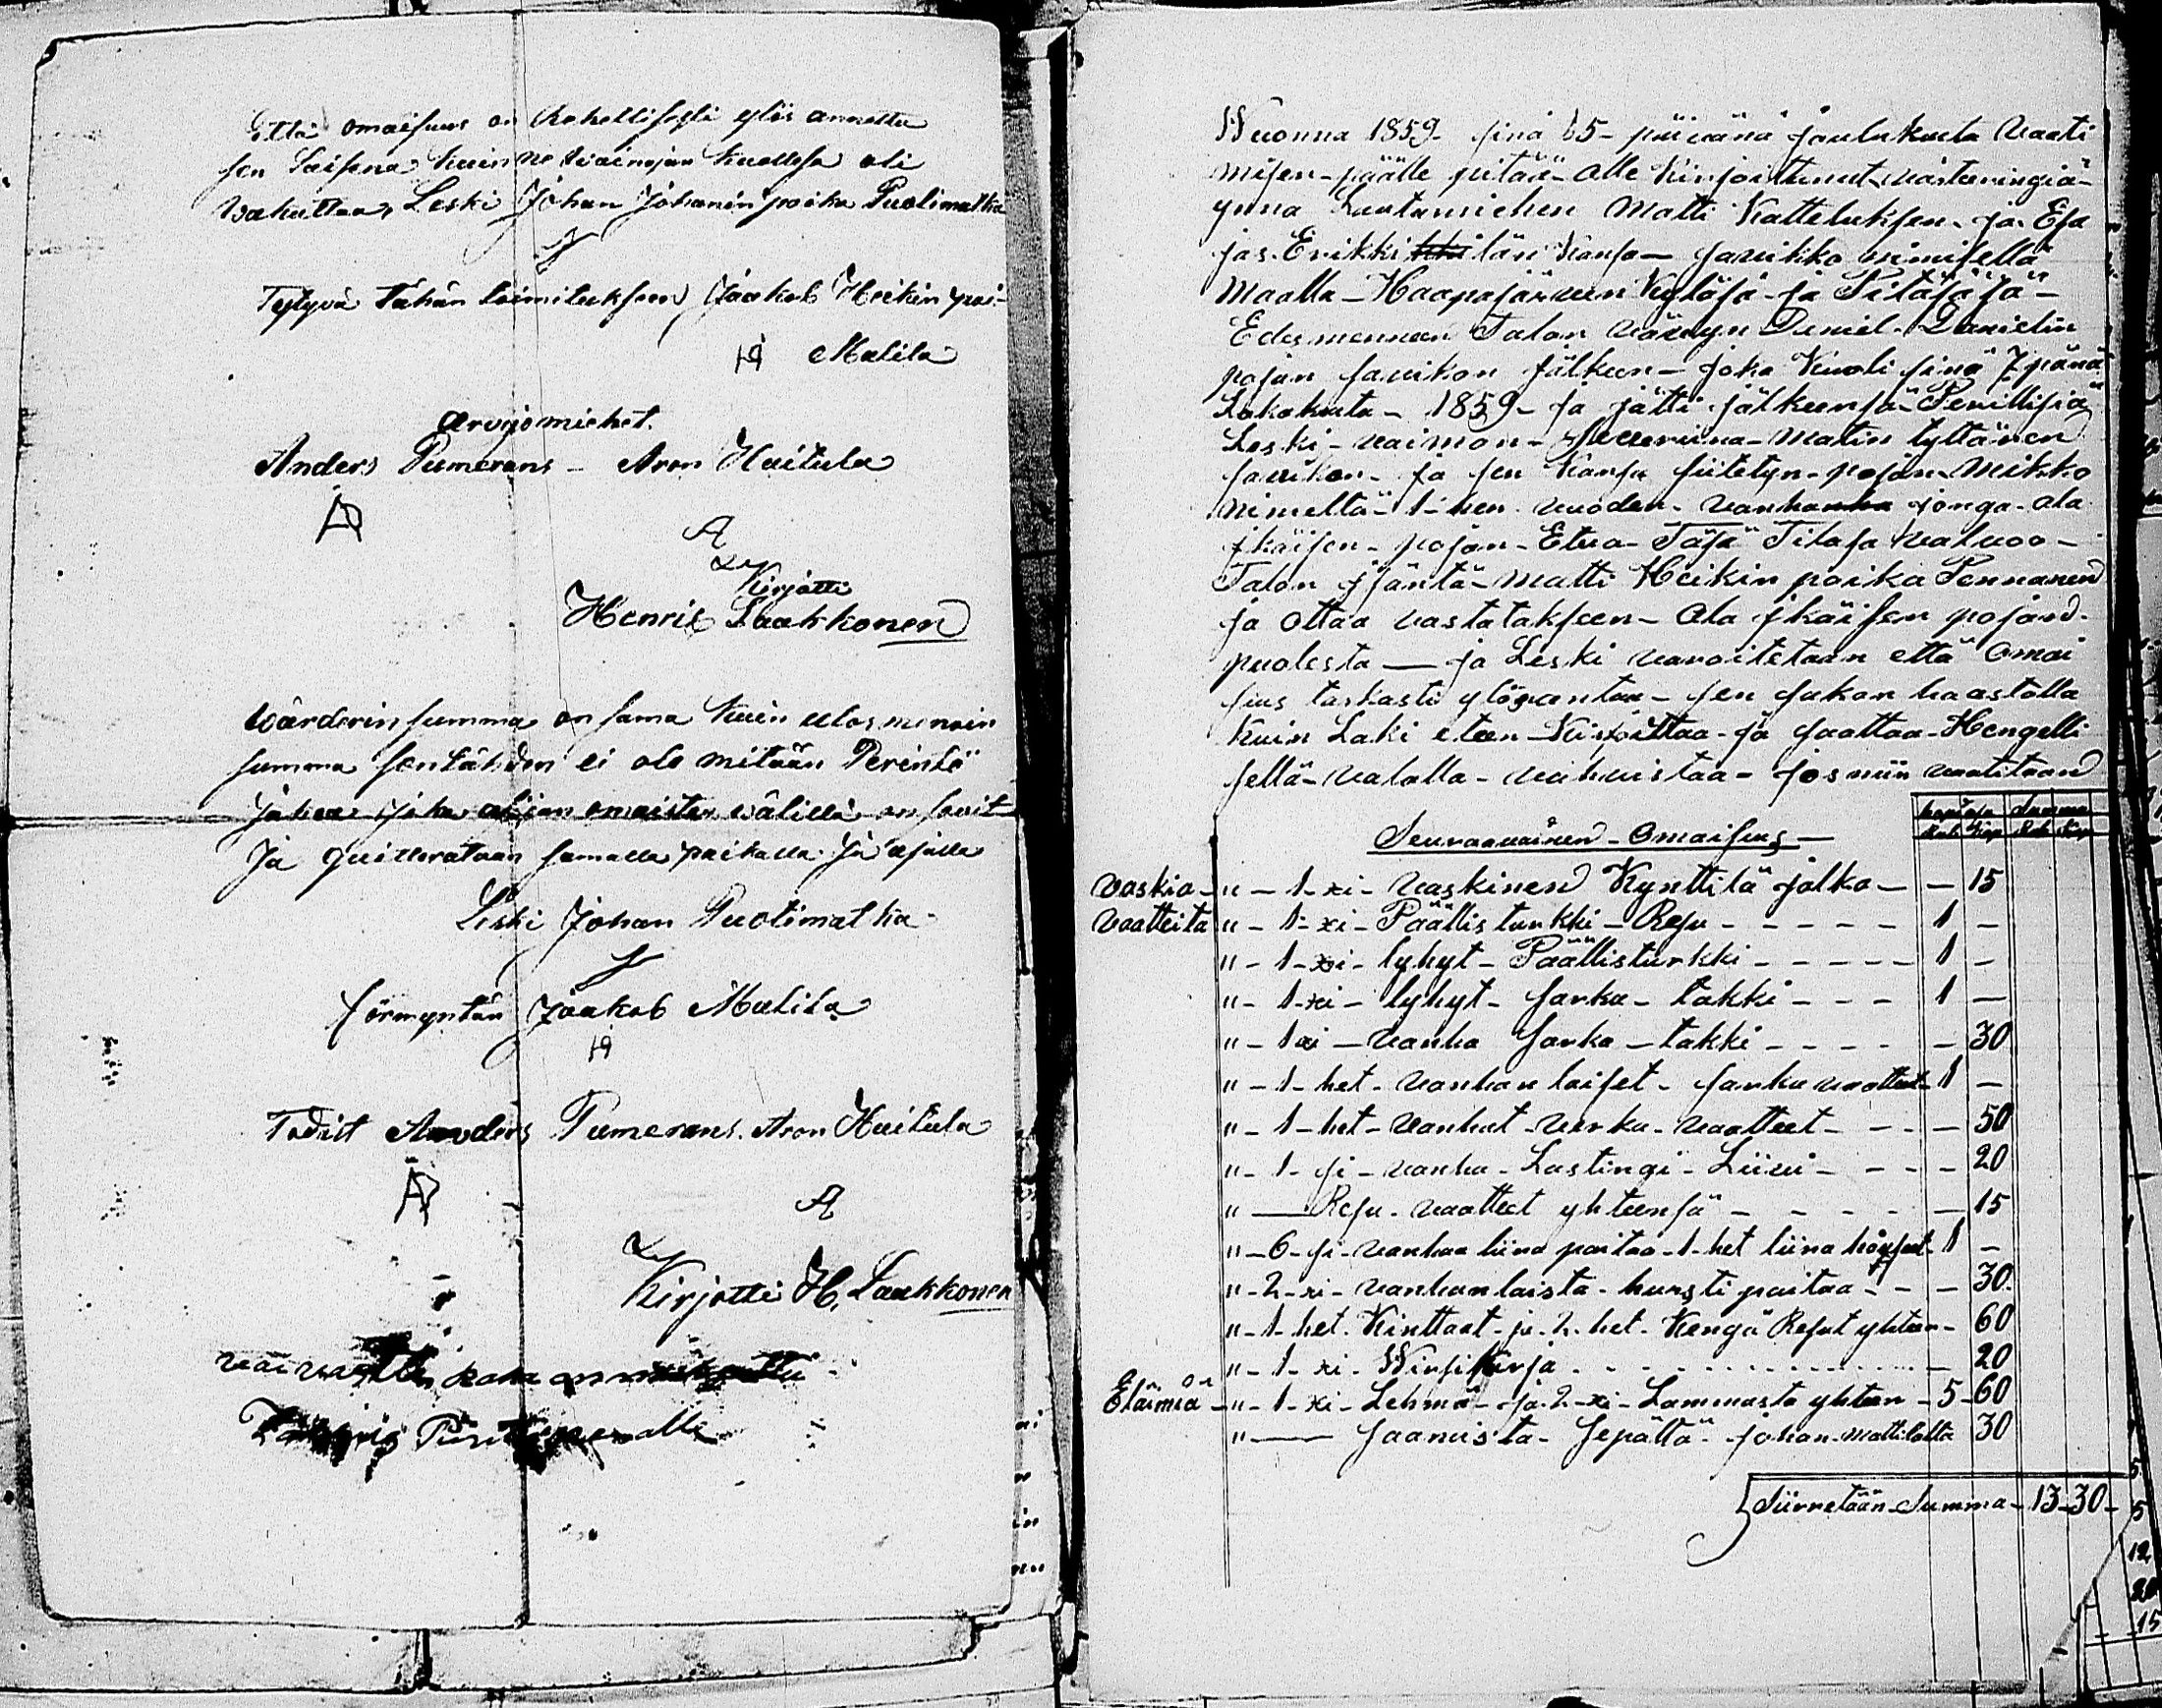 Että omaisuus on Rehellisesti ylös annettu
sen laisena kuin se vaimojan kuollesa oli
wakuttaa Leski Johan Johanin poika Puolimatka
Tytyvä tähän toimitukseen Jaakob Heikin poi-
Malila
Arvijomiehet.
Anders Pumerans - Aron Huitula
Kirjotti
Henrik Laakkonen
Wärderin summa on sama kuin ulos menoin
summa sentähden ei ole mitään Perintö
jakoa joka asian omaisten välillä on sovit
Ja quitterataan samalla paikalla ja ajalla
Leski Johan Puolimatka
förmyntäri Jaakob Malila
Todist Anders Pumerans. Aron Huitula
Kirjotti H. Laakkonen
Wuonna 1859 sinä 15 päivänä joulukuuta Vaati
misen päälle pitää Alle Kirjoittanut värteeringiä
ynnä Lautamiehen Matti Katteluksen ja Esa
jas Erikki län kansa savikko nimisellä
Maalla Haapajärven Kylösä ja Pitäjäsä
Edesmennen Talon vävyn Daniel Danielin
pojan savikon jälkeen joka Kuoli sinä 7 pänä
Lokakuuta 1859 ja jätti jälkeensä Perillisiä
Leski vaimon Severiina Matin tyttären
savikon ja sen kansa siitetyn pojan Mikko
nimeltä 1-hen vuoden vanha jonga ala
jkäisen pojan Etua Täsä Tilasa valvoo
Talon jsäntä Matti Heikin poika Pennanen
ja ottaa vastataksen Ala jkäisen pojan
puolesta ja Leski varoitetaan että omai
sus tarkasti ylösantaa sen sakon haastolla
kuin Laki eteen Kirjoittaa ja saattaa Hengelli
sellä valalla vahvistaa jos niin vaatitaan
Summa
Rub Kop Rub Kop
Seuraavainen Omaisus
Vaskia " - 1 - xi - Vaskinen Kynttilä jalka - - 15
Vaatteita " - 1 - xi - Päällis turkki - Resu - 1 -
" - 1 - xi - lyhyt - Päällisturkki - 1 -
" - 1 - xi - lyhyt - sarka - takki - 1 -
" - 1 xi - vanha sarka - takki - - 30
" - 1 - het - vanhan laiset - sarka vaatteet - 1 -
" - 1 - het - vanhat - verka - vaatteet - - 50
" - 1 - si - vanha - Lastingi - Liivi - - 20
" - Resu - vaatteet yhteensä - - 15
" - 6 - si - vanhaa liina paitaa - 1 - het liina höysut - 1 -
" - 2 - xi - vanhan laista - hursti paitaa - - 30
" - 1 - het. Kinttaat - ja - 2 - het - Kengä Resut yhteen - 60
" - 1 - xi - Wirsikirja - 20
Eläimiä " - 1 - xi - Lehmä - ja - 2 - xi - Lammasta yhteen - 5 - 60
" - saamista - sepältä - johan - mattilalta 30
Siirretään Summa - 13 - 30 -